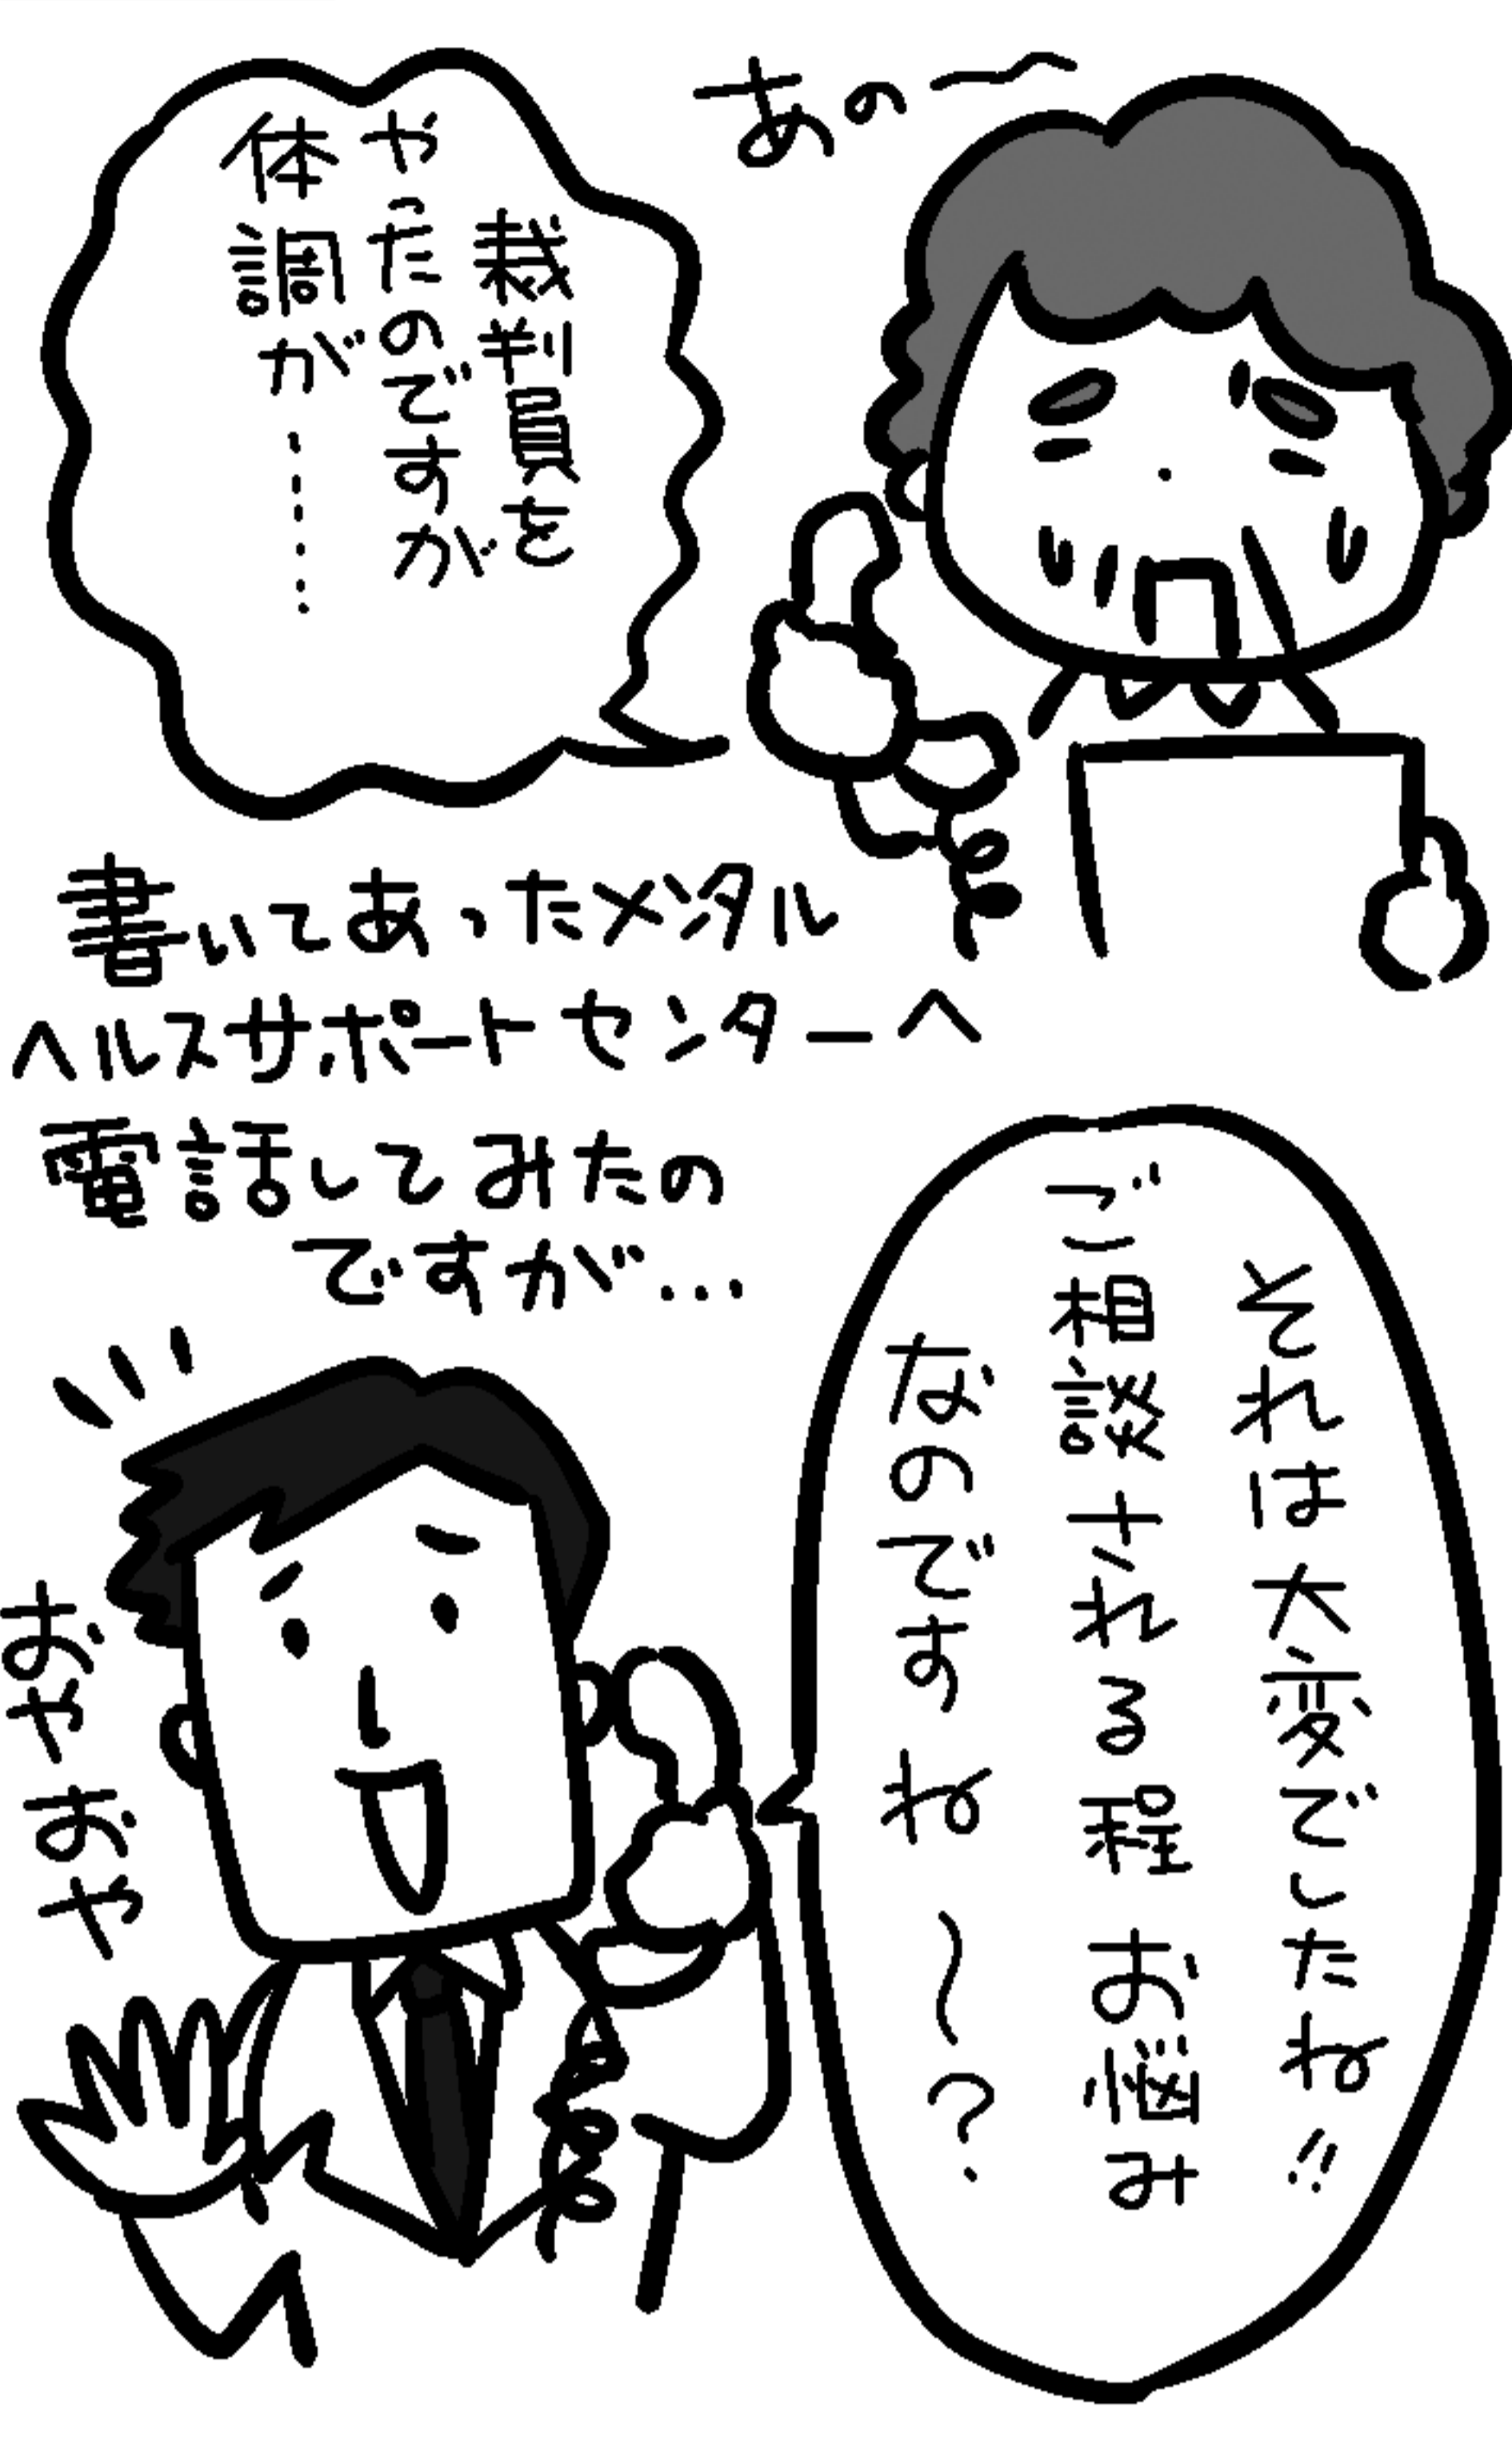 あの〜
栽判員を
やったのですが
体調が……
書いてあったメンタル
ヘルスサポートセンターへ
電話してみたの
ですが…
それは大変でしたね!!
ご相談される程お悩み
なのですね〜?
おやおや